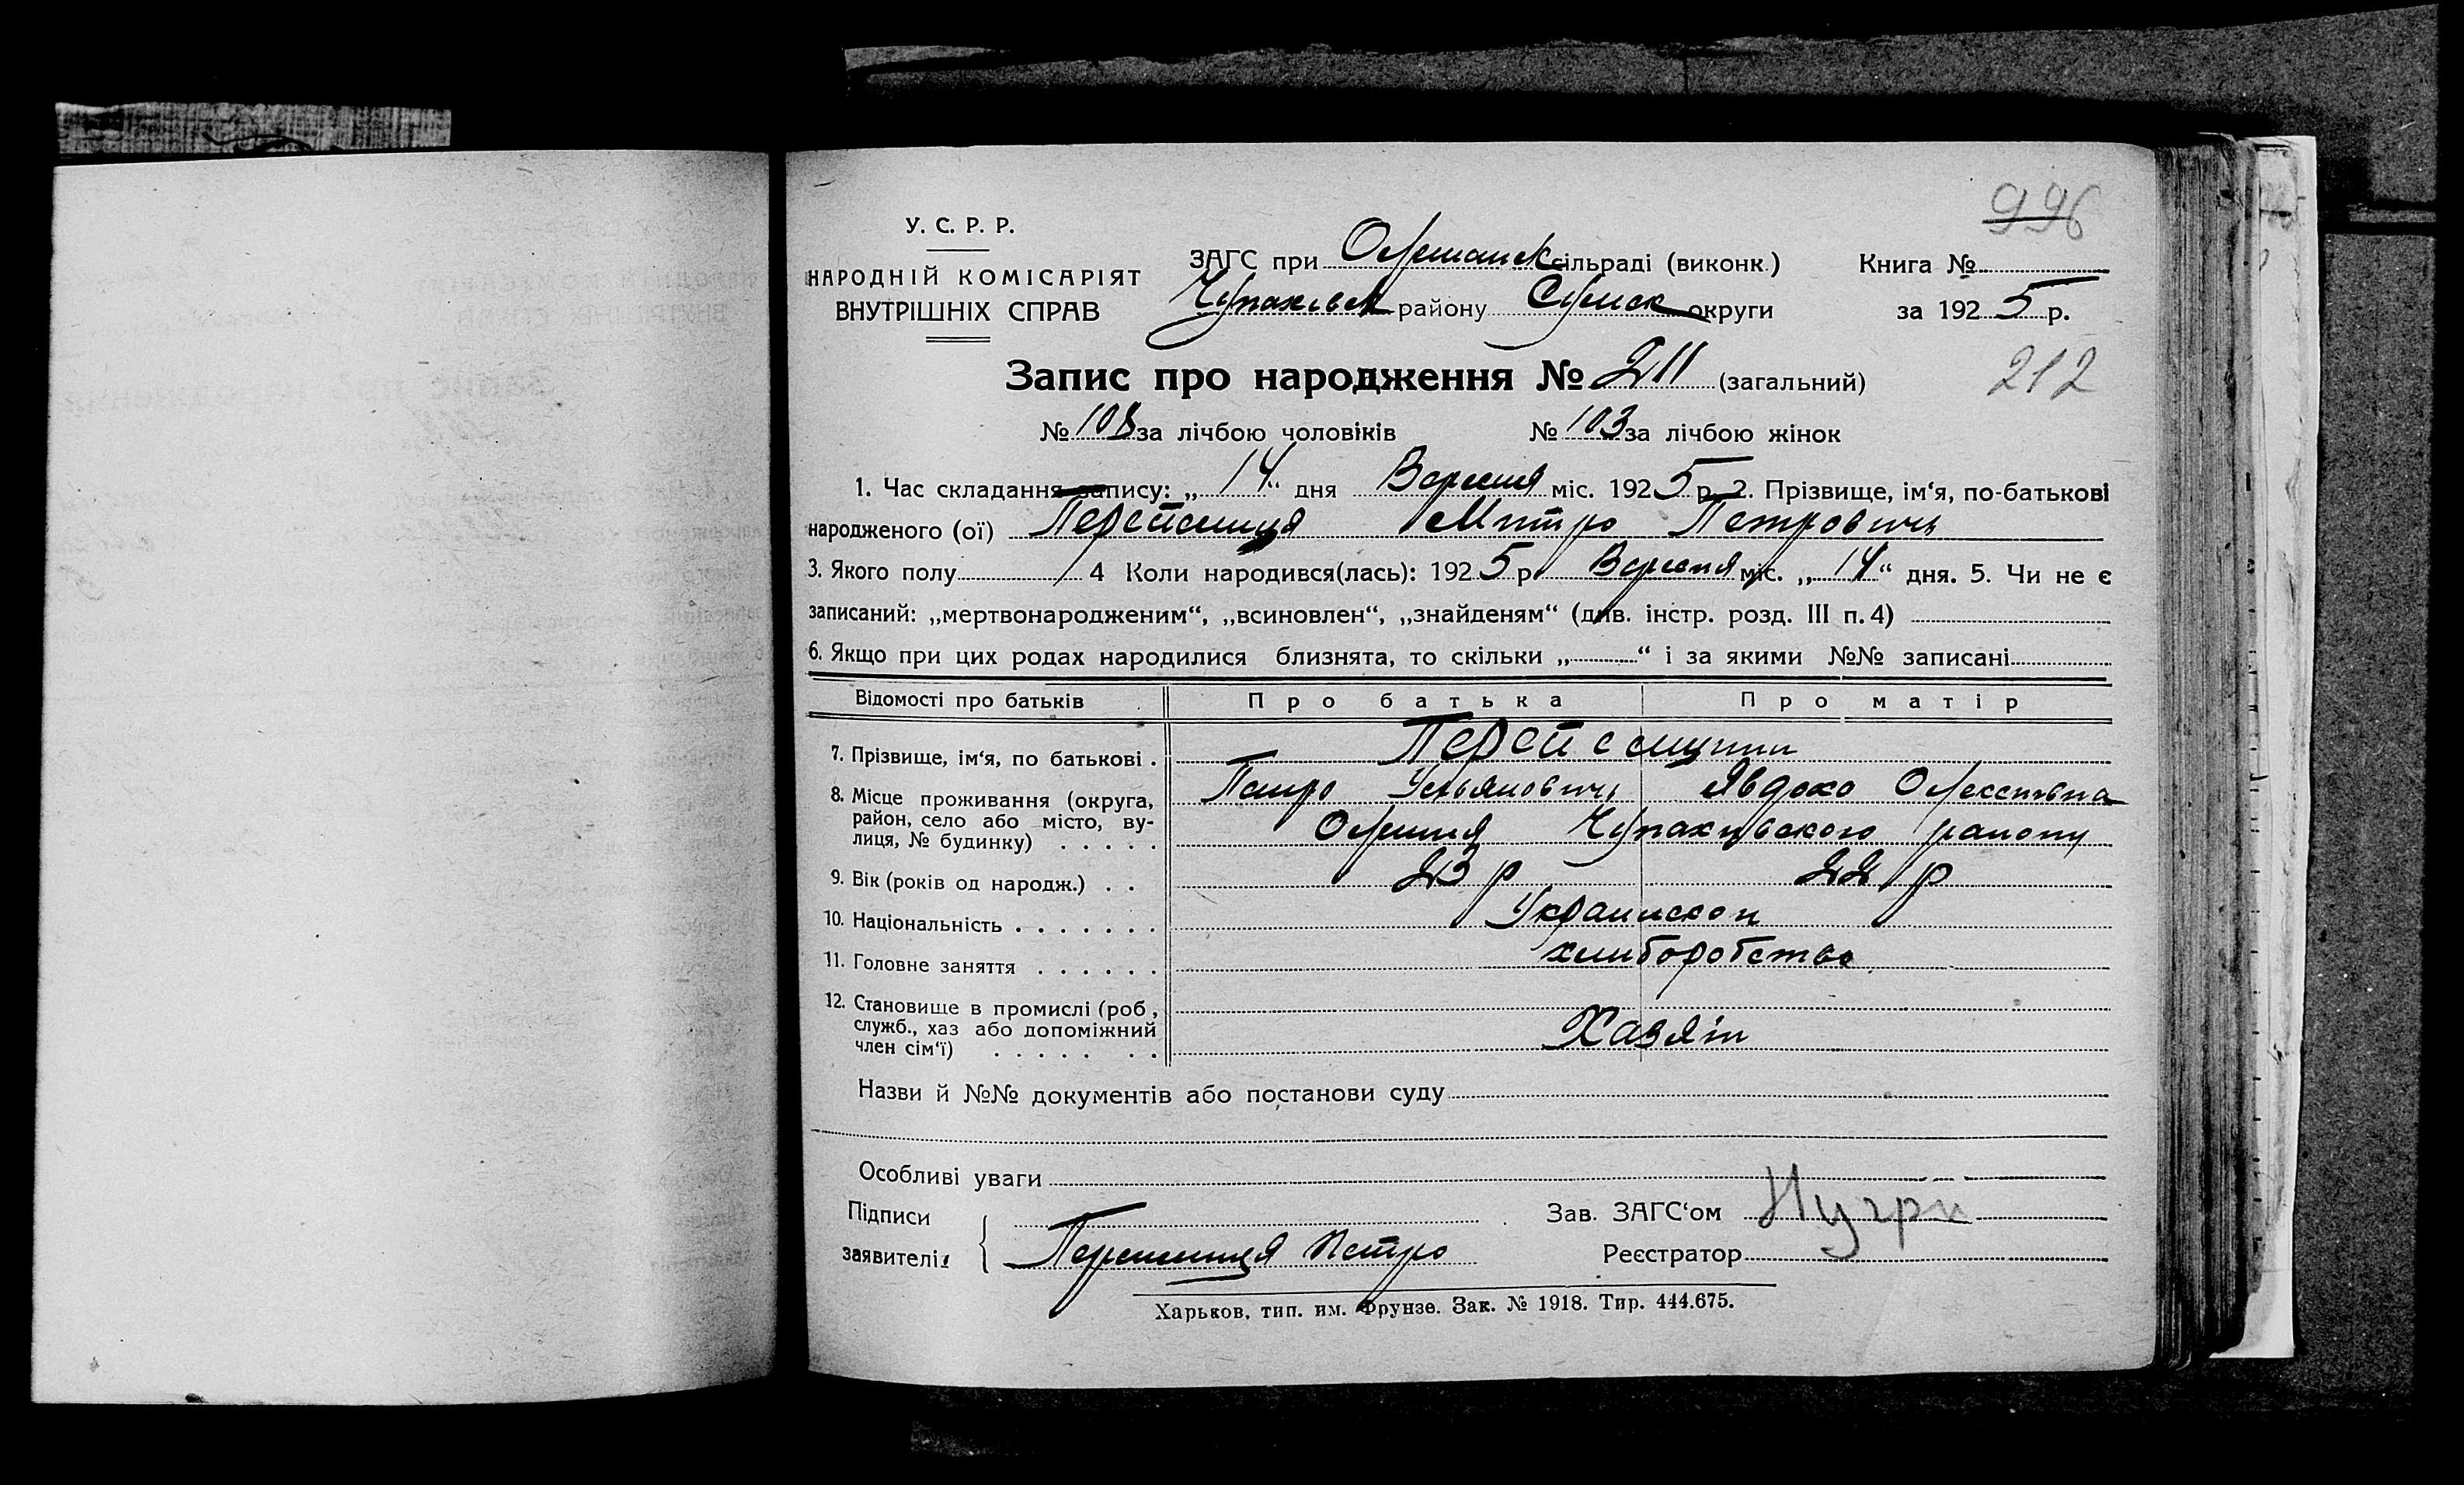 996
У. С. Р. Р.
НАРОДНІЙ КОМІСАРІЯТ
ВНУТРІШНІХ СПРАВ
ЗАГС при Олешанск сільраді (виконк.)
Чупахівск району Сумск округи
Книга №
за 1925 р.
Запис про народження № 211 (загальний)
212
№ 108 за лічбою чоловіків № 103 за лічбою жінок
1. Час складання запису: „14“ дня Вересня міс. 1925 р. 2. Прізвище, ім‘я, по-батькові
народженого (ої) Митро Петровичь
3. Якого полу 4 Коли народився(лась): 1925 р. Вересня міс. „14“ дня. 5. Чи не є
записаний: „мертвонародженим“, „всиновлен“, „знайденям“ (див. інстр. розд. III п. 4)
6. Якщо при цих родах народилися близнята, то скільки „ “ і за якими №№ записані
Відомості про батьків Про батька Про матір
7. Прізвище, ім‘я, по батькові .
Петро Ульянович Явдоха
8. Місце проживання (округа,
район, село або місто, ву-
лиця, № будинку) . . . . .
Олешня Чупахивського району
9. Вік (років од народж.) . . 23 р 22 р
10. Національність . . . . . . .
11. Головне заняття . . . . . . хлиборобство
12. Становище в промислі (роб.,
служб., хаз або допоміжний
член сім‘ї) . . . . . . .
Хазяін
Назви й №№ документів або постанови суду
Особливі уваги
Підписи
заявителів
Петро
Зав. ЗАГС‘ом
Реєстратор
Харьков, тип. им. Фрунзе. Зак. № 1918. Тир. 444.675.